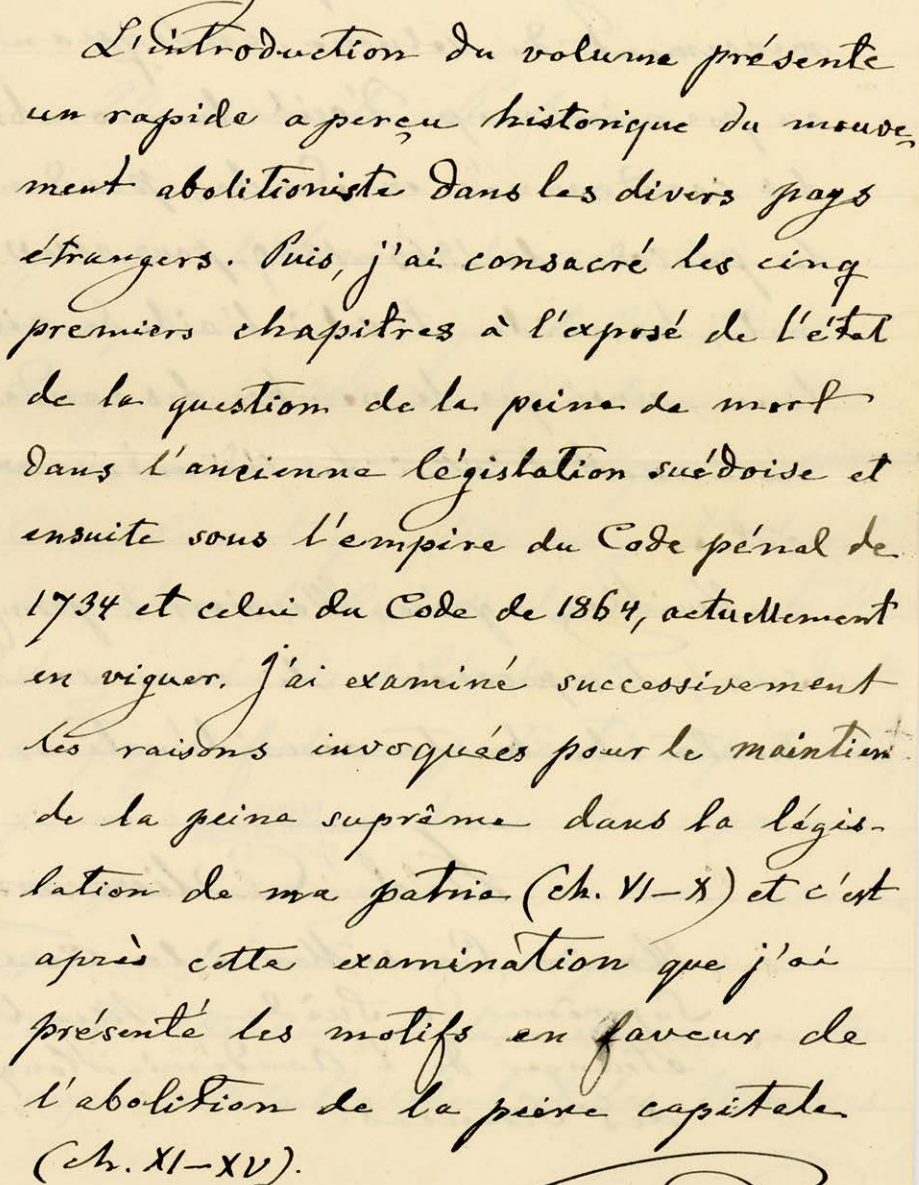 L'introduction du volume présente
un rapide aperçu historique du mouve-
ment abolitioniste dans les divers pays
étrangers. Puis, j'ai consacré les cinq
premiers chapitres à l'exposé de l'état
de la question de la peine de mort
dans l'ancienne législation suédoise et
ensuite sous l'empire du Code pénal de
1734 et celui du Code de 1864, actuellement
en viguer. J'ai examiné successivement
les raisons invoquées pour le maintien
de la peine suprême dans la légis-
lation de ma patrie (ch. VI–X) et c'est
après cette examination que j'ai
présenté les motifs en faveur de
l'abolition de la peine capitale
(ch. XI–XV).